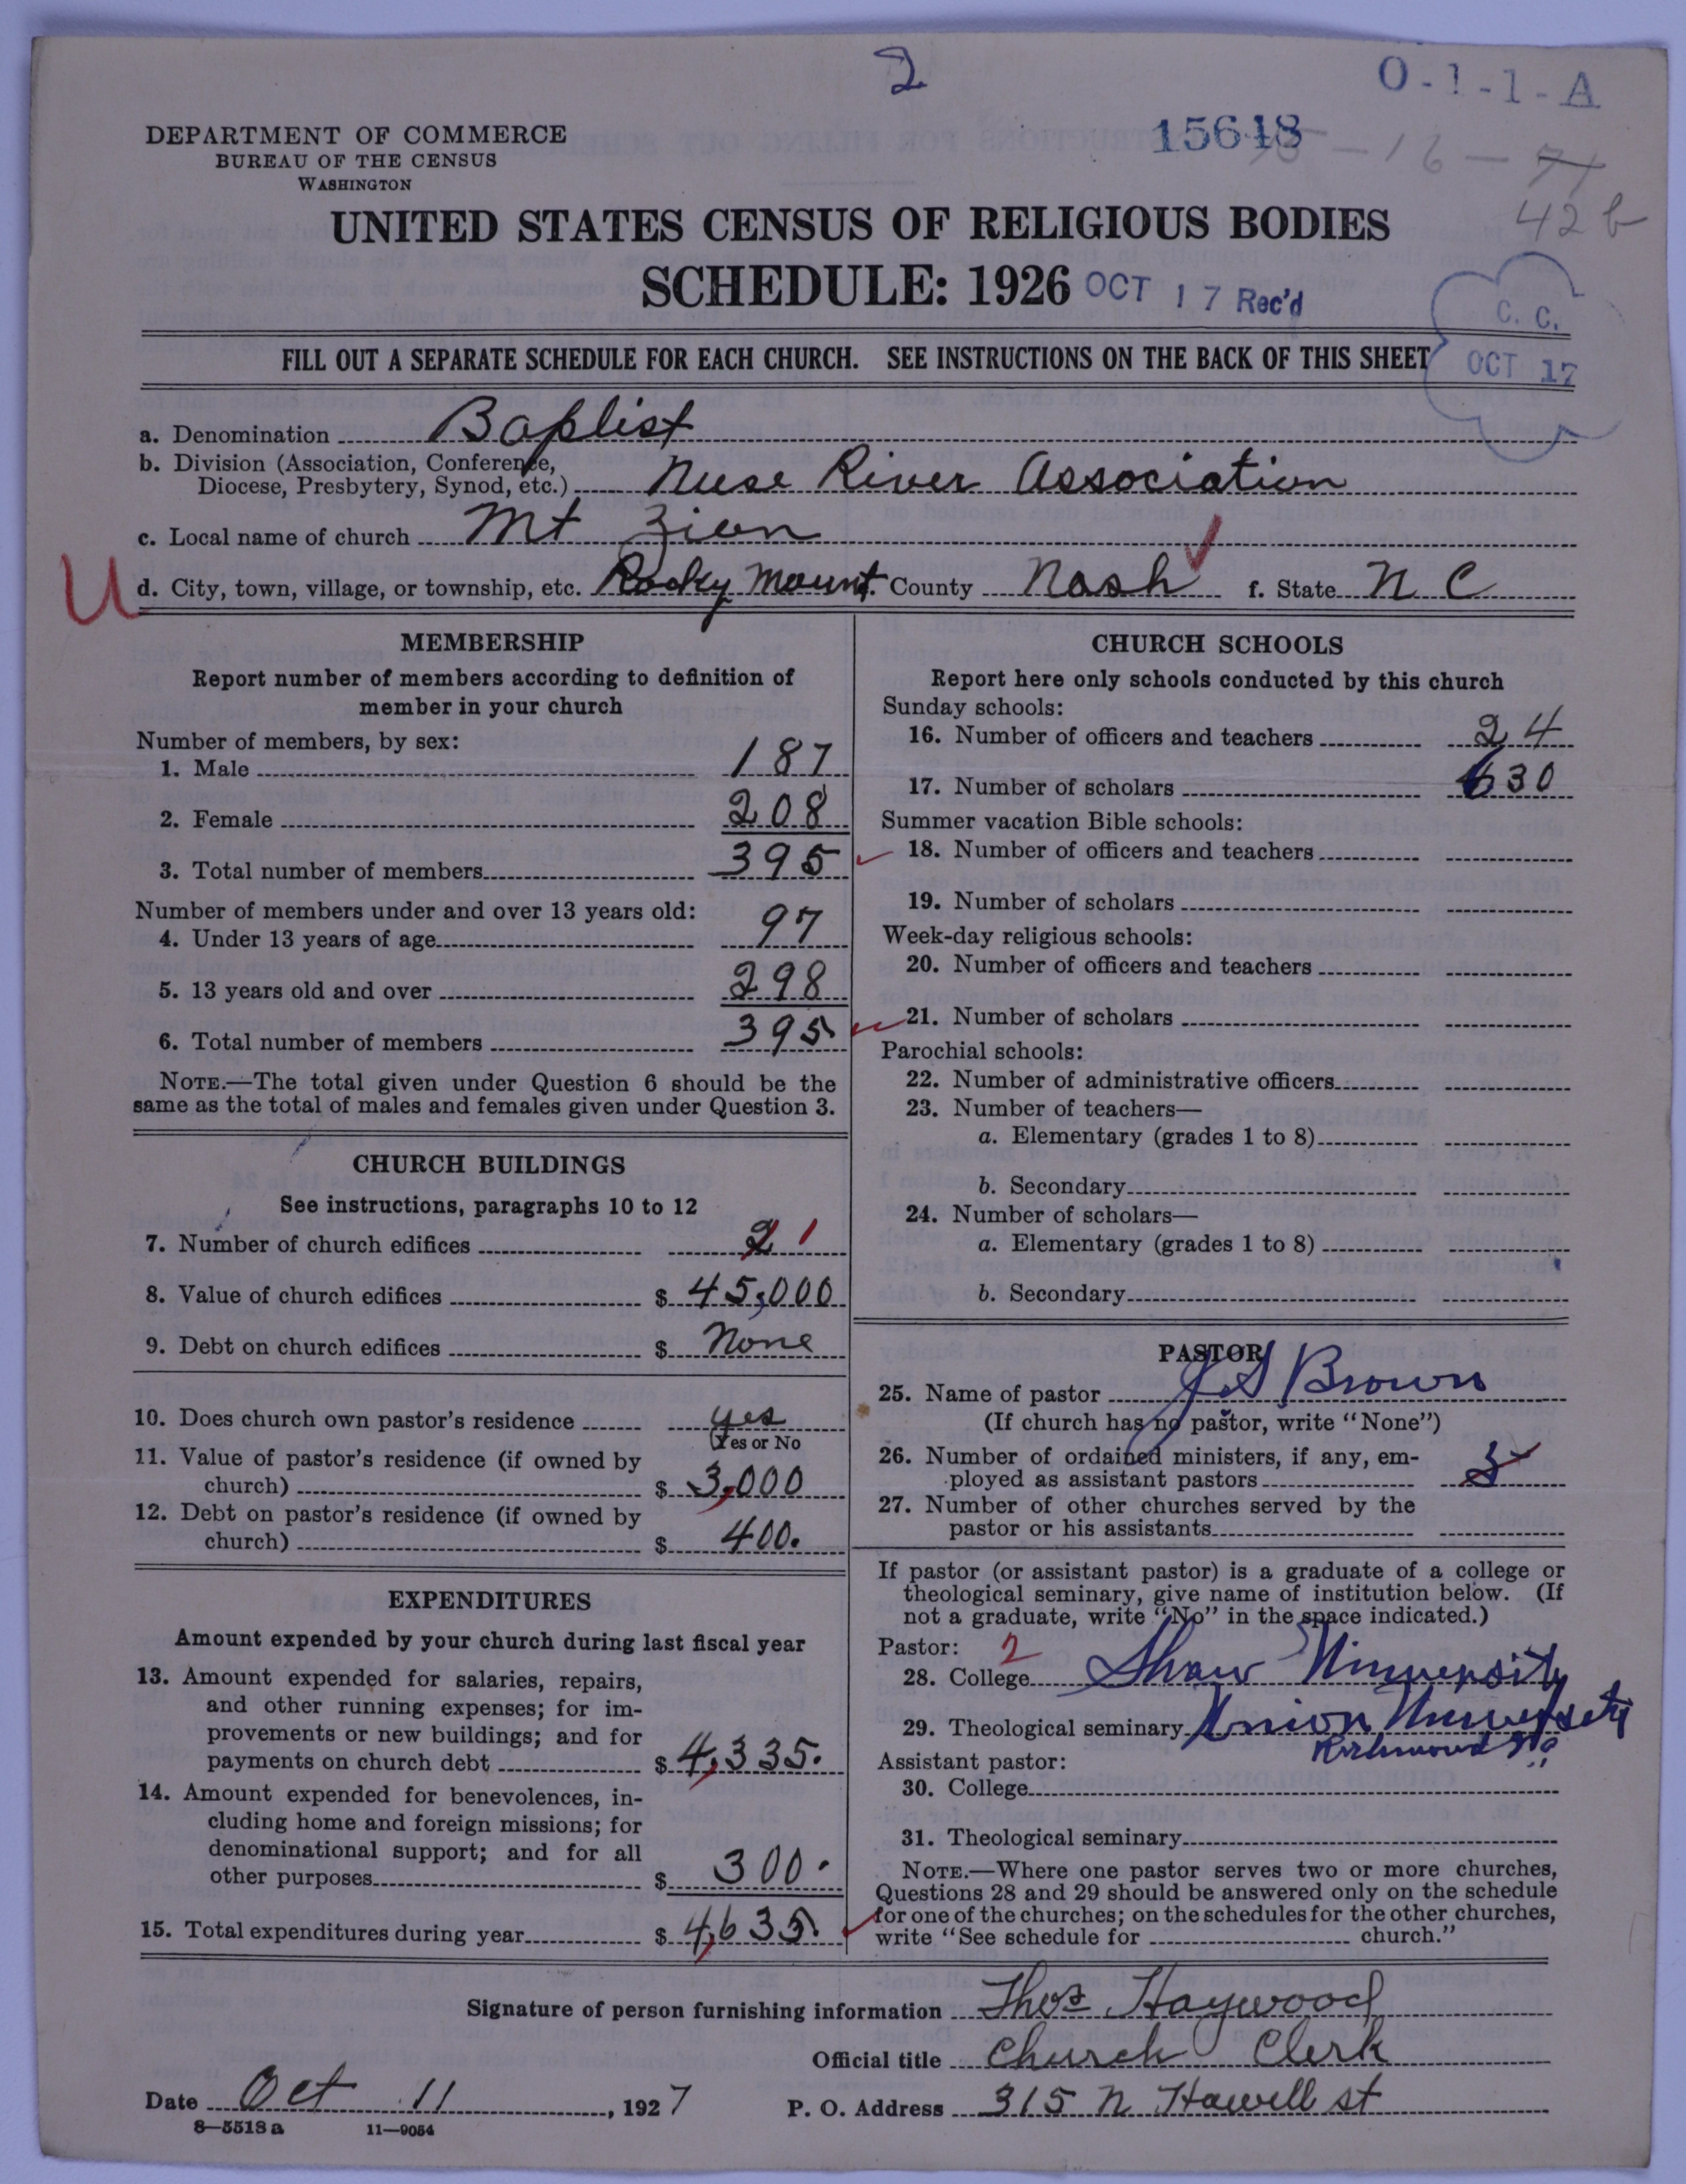 2
O-1-1-A
15648
- 16 -
42 b
DEPARTMENT OF COMMERCE
BUREAU OF THE CENSUS
WASHINGTON
UNITED STATES CENSUS OF RELIGIOUS BODIES
SCHEDULE: 1926 OCT 17 Rec'd
C. C.
OCT 17
FILL OUT A SEPARATE SCHEDULE FOR EACH CHURCH. SEE INSTRUCTIONS ON THE BACK OF THIS SHEET
a. Denomination Baptist
b. Division (Association, Conference,
Diocese, Presbytery, Synod, etc.) Neuse River Association
c. Local name of church Mt Zion
U d. City, town, village, or township, etc. Rocky Mount County Nash f. State N C
MEMBERSHIP
Report number of members according to definition of
member in your church
Number of members, by sex:
1. Male 187
2. Female 208
3. Total number of members 395
Number of members under and over 13 years old:
4. Under 13 years of age 97
5. 13 years old and over 298
6. Total number of members 395
NOTE.—The total given under Question 6 should be the
same as the total of males and females given under Question 3.
CHURCH BUILDINGS
See instructions, paragraphs 10 to 12
7. Number of church edifices 2 1
8. Value of church edifices $ 45,000
9. Debt on church edifices $ None
10. Does church own pastor's residence yes
(Yes or No
11. Value of pastor's residence (if owned by
church) $ 3,000
12. Debt on pastor's residence (if owned by
church) $ 400.
EXPENDITURES
Amount expended by your church during last fiscal year
13. Amount expended for salaries, repairs,
and other running expenses; for im-
provements or new buildings; and for
payments on church debt $ 4,335.
14. Amount expended for benevolences, in-
cluding home and foreign missions; for
denominational support; and for all
other purposes $ 300.
15. Total expenditures during year $ 4,635.
CHURCH SCHOOLS
Report here only schools conducted by this church
Sunday schools:
16. Number of officers and teachers 24
17. Number of scholars 630
Summer vacation Bible schools:
18. Number of officers and teachers
19. Number of scholars
Week-day religious schools:
20. Number of officers and teachers
21. Number of scholars
Parochial schools:
22. Number of administrative officers
23. Number of teachers—
a. Elementary (grades 1 to 8)
b. Secondary
24. Number of scholars—
a. Elementary (grades 1 to 8)
b. Secondary
PASTOR
25. Name of pastor J S Brown
(If church has no pastor, write "None")
26. Number of ordained ministers, if any, em-
ployed as assistant pastors 3
27. Number of other churches served by the
pastor or his assistants
If pastor (or assistant pastor) is a graduate of a college or
theological seminary, give name of institution below. (If
not a graduate, write "No" in the space indicated.)
Pastor: 2
28. College Shaw University
29. Theological seminary Union University
Richmond Va
Assistant pastor:
30. College
31. Theological seminary
NOTE.—Where one pastor serves two or more churches,
Questions 28 and 29 should be answered only on the schedule
for one of the churches; on the schedules for the other churches,
write "See schedule for church."
Signature of person furnishing information Thos Haywood
Official title Church Clerk
Date Oct 11, 1927 P. O. Address 315 N Howell st
8—5518 a 11—9054